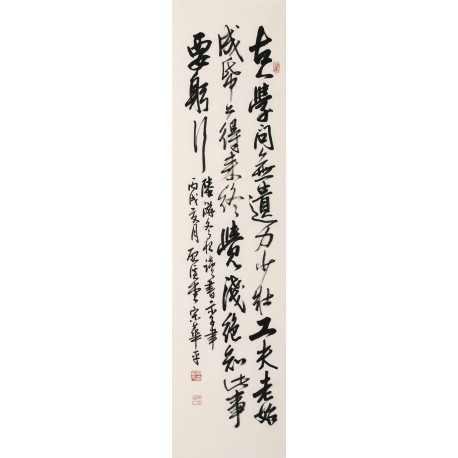 古人學問無遺力少壯工夫老始
成帋上得來終覺淺絕知此事
要躬行
陸游冬夜讀書示子聿
丙戌夏月宋華平